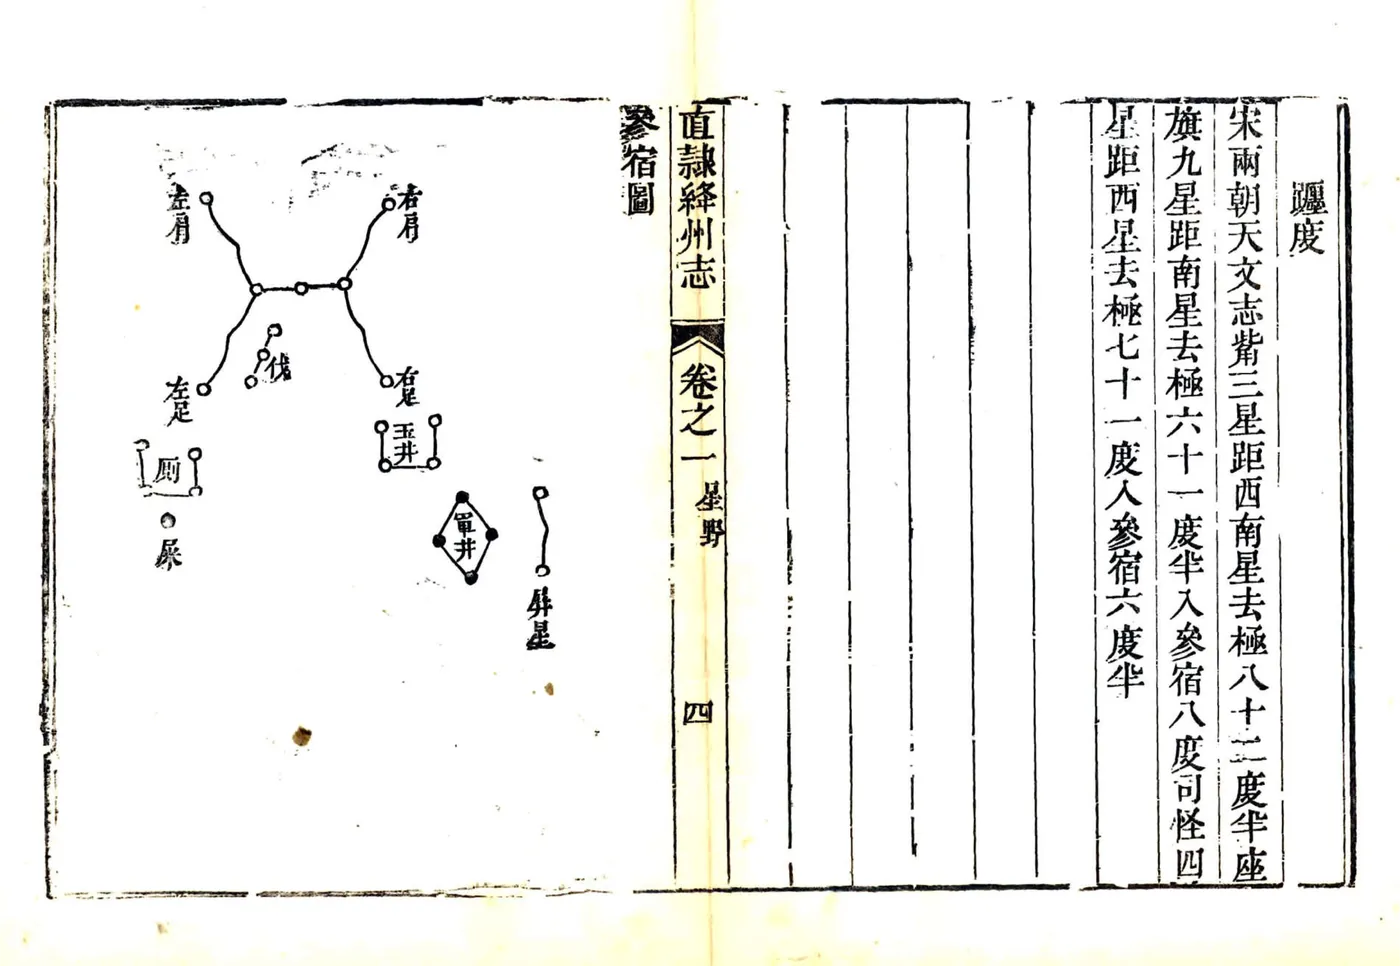 躔度
宋兩朝天文志觜三星距西南星去極八十二度半座
旗九星距南星去極六十一度半入參宿八度司怪四
星距西星去極七十一度入參宿六度半
直隸絳州志
卷之一
星野
四
參宿圖
右肩
左肩
伐
右足
左足
玉井
厠
軍井
屎
屏星